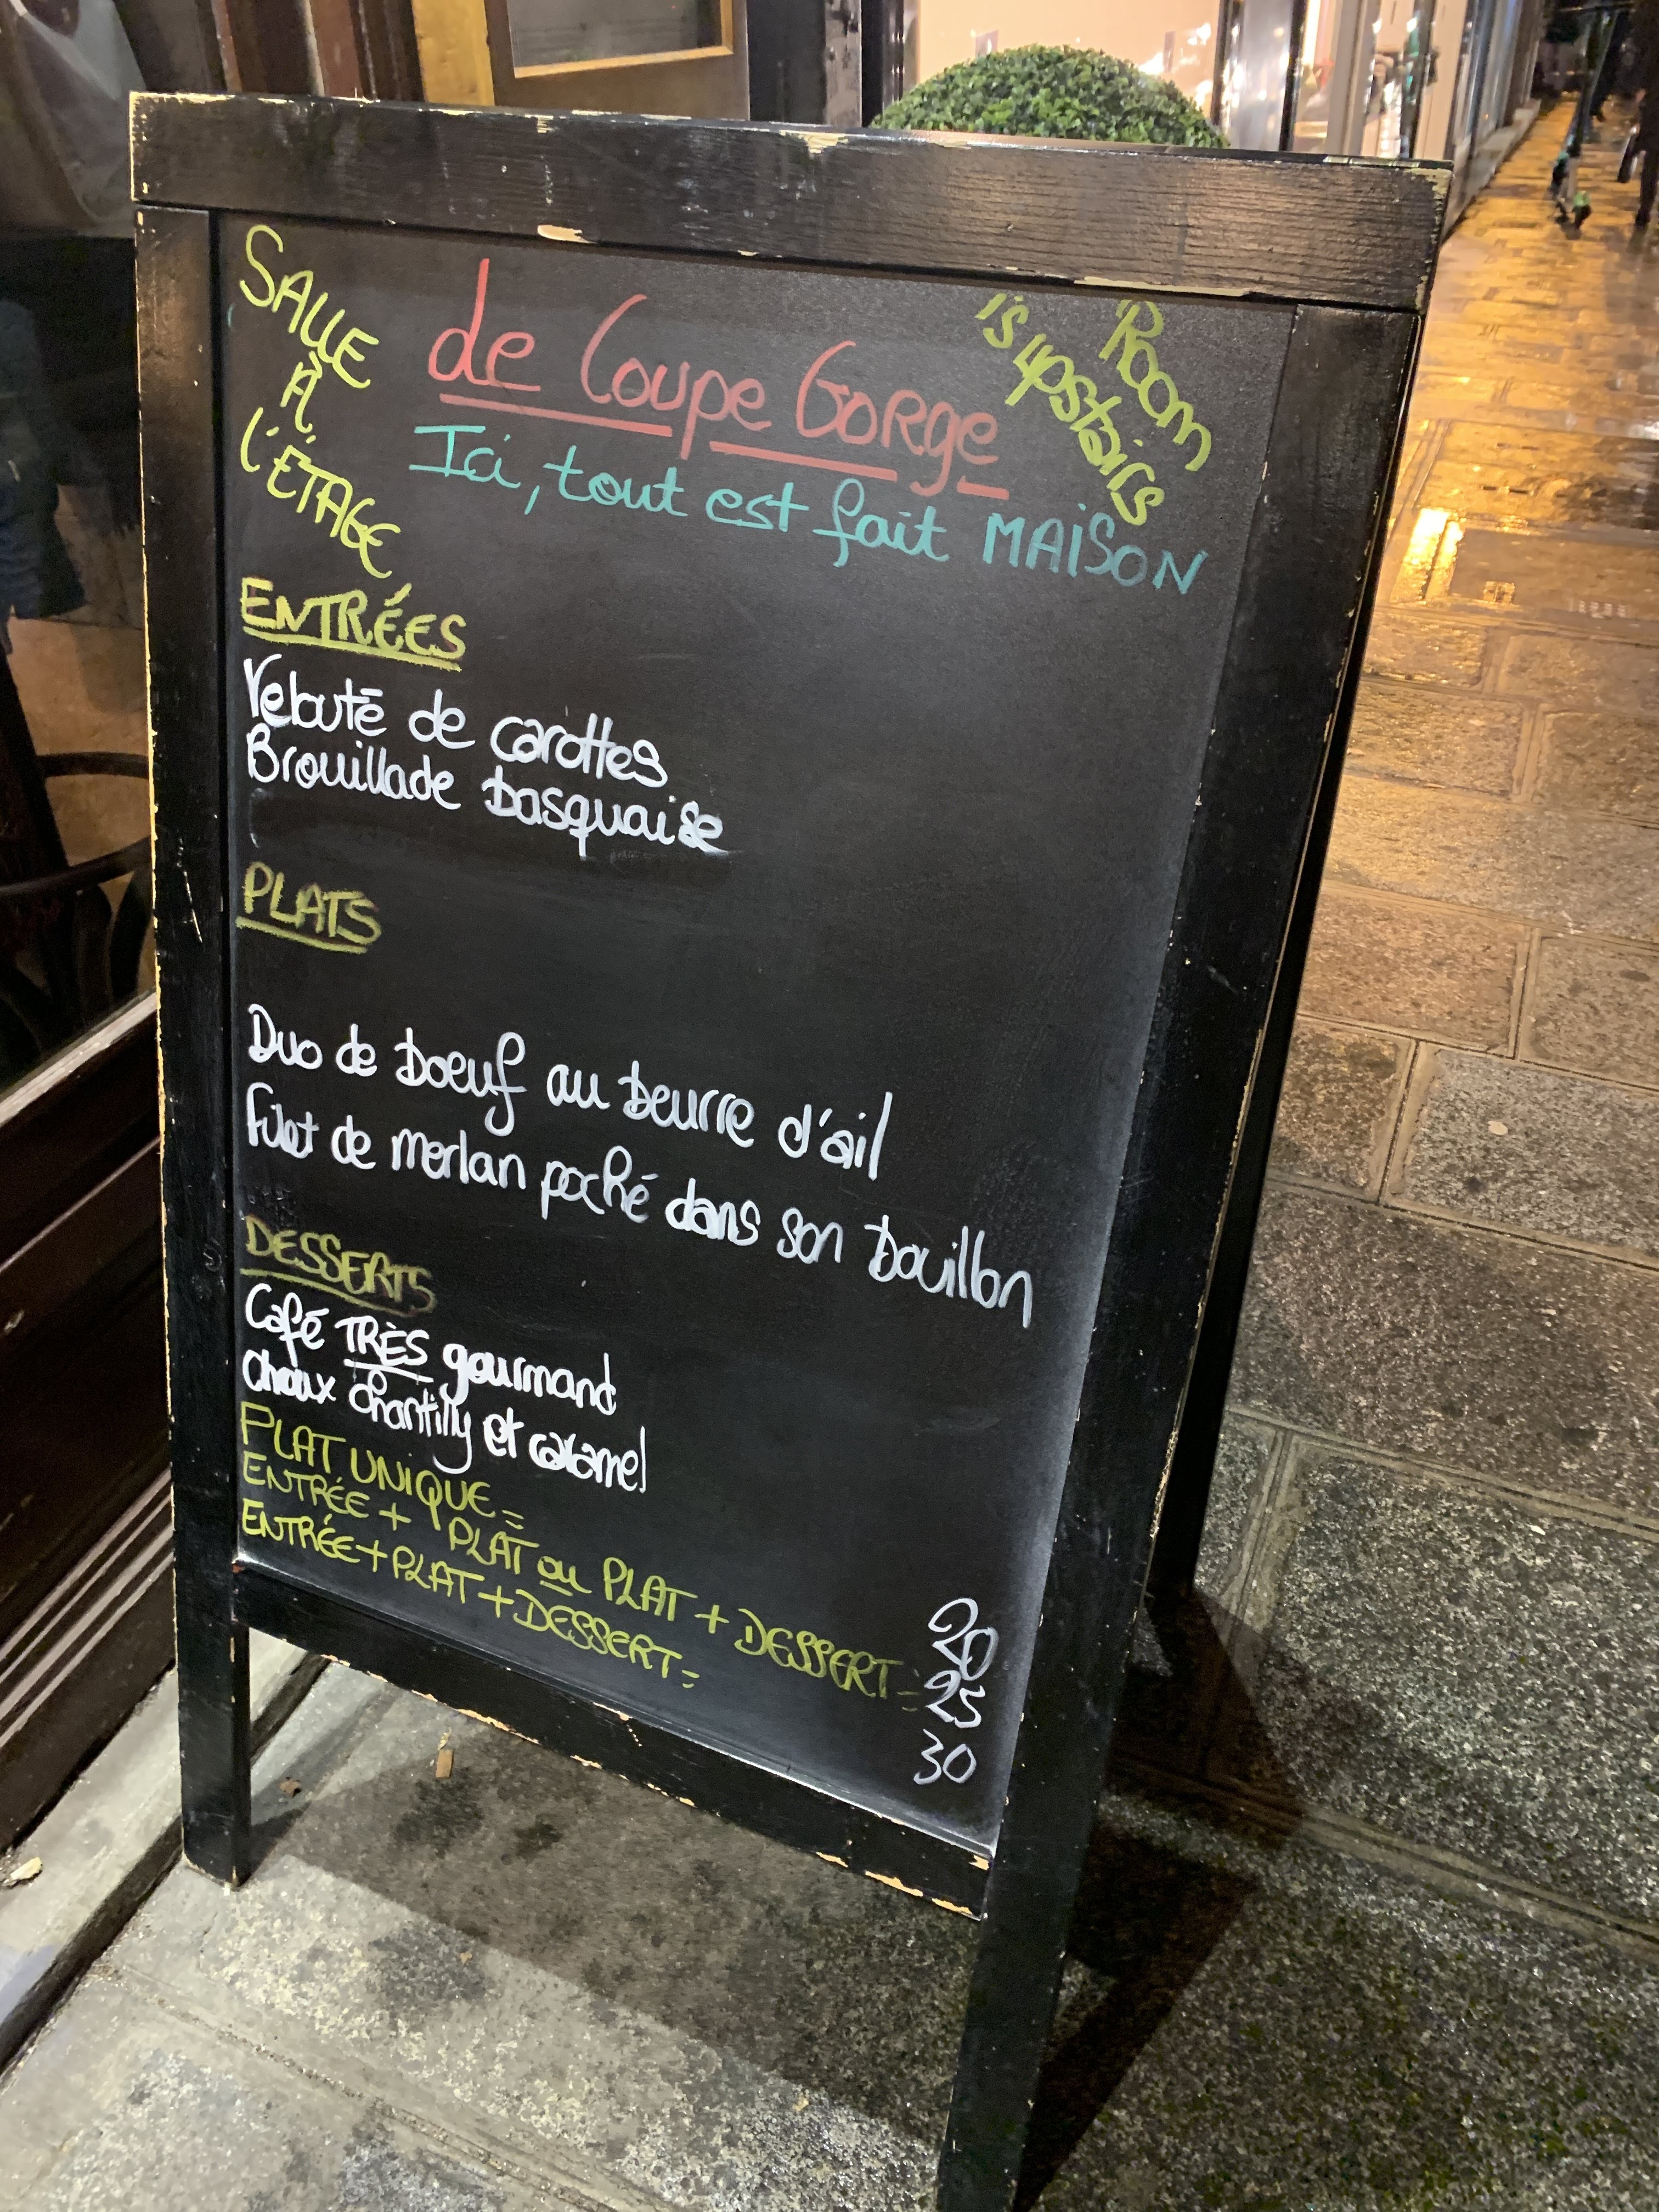 SALLE
À
L'ÉTAGE
de Coupe Gorge
Room
is upstairs
Ici, tout est fait MAISON
ENTRÉES
Velouté de carottes
Brouillade basquaise
PLATS
Duo de boeuf au beurre d'ail
Filet de merlan poché dans son bouillon
DESSERTS
Café TRÈS gourmand
Choux chantilly et caramel
PLAT UNIQUE = 20
ENTRÉE + PLAT ou PLAT + DESSERT = 25
ENTRÉE + PLAT + DESSERT = 30